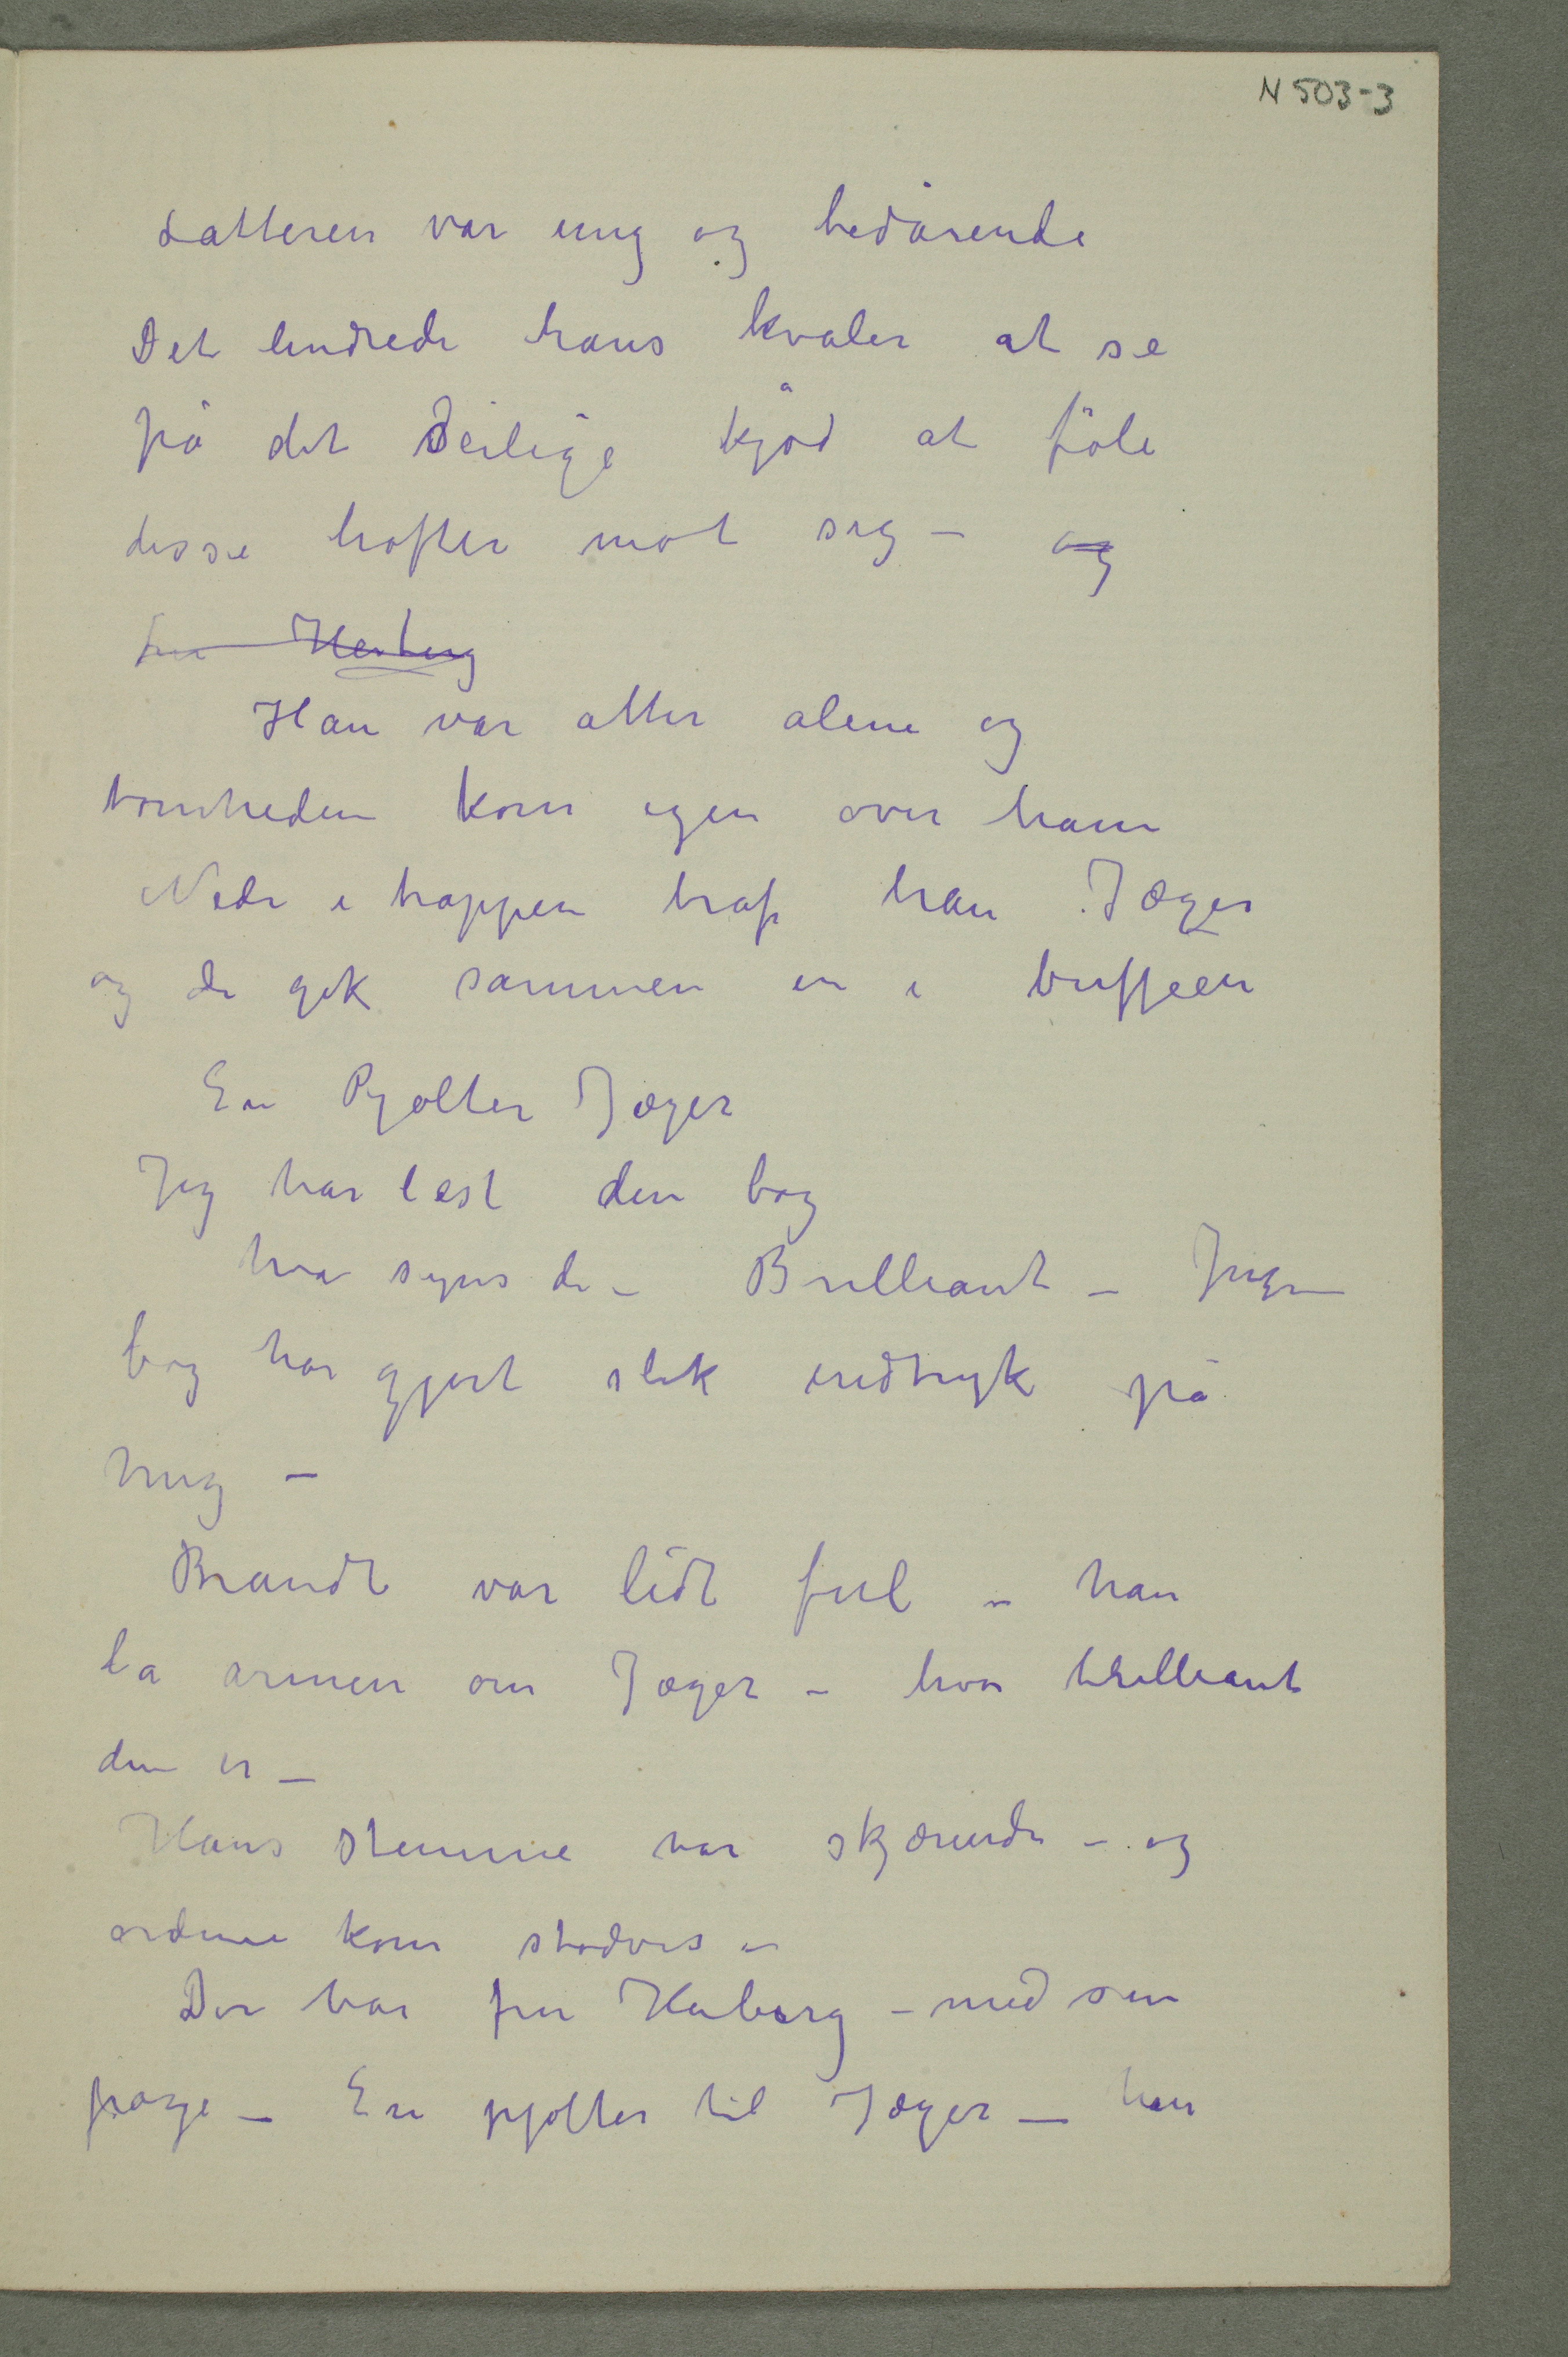 N 503-3
Latteren var ung og bedårende
Det lindrede hans kvaler at se
på det deilige kjød at føle
disse hofter mot sig – og
fru Herberg
Han var atter alene og
tomheden kom igen over ham
Nede i trappen traf han Jæger
og de gik sammen in i buffeen
En Pjolter Jæger
Jeg har læst din bog
hva syns du – Brilliant – Ingen
bog har gjort slik indtryk på
mig –
Brandt var lidt ful – han
la armen om Jæger – hvor brilliant
den er –
Hans stemme var skjærende – og
ordene kom stødvis –
Der var fru Heiberg – med sin
page – En pjolter til Jæger – han